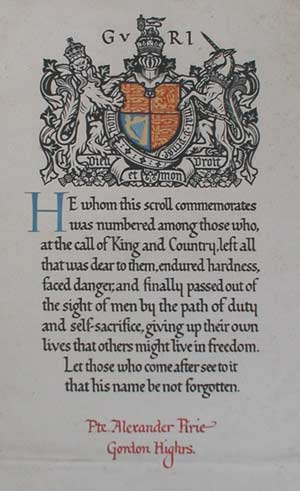 GvRI
Dieu et mon Droit
HE whom this scroll commemorates
was numbered among those who,
at the call of King and Country, left all
that was dear to them, endured hardness,
faced danger, and finally passed out of
the sight of men by the path of duty
and self-sacrifice, giving up their own
lives that others might live in freedom.
Let those who come after see to it
that his name be not forgotten.
Pte. Alexander Pirie
Gordon Highrs.